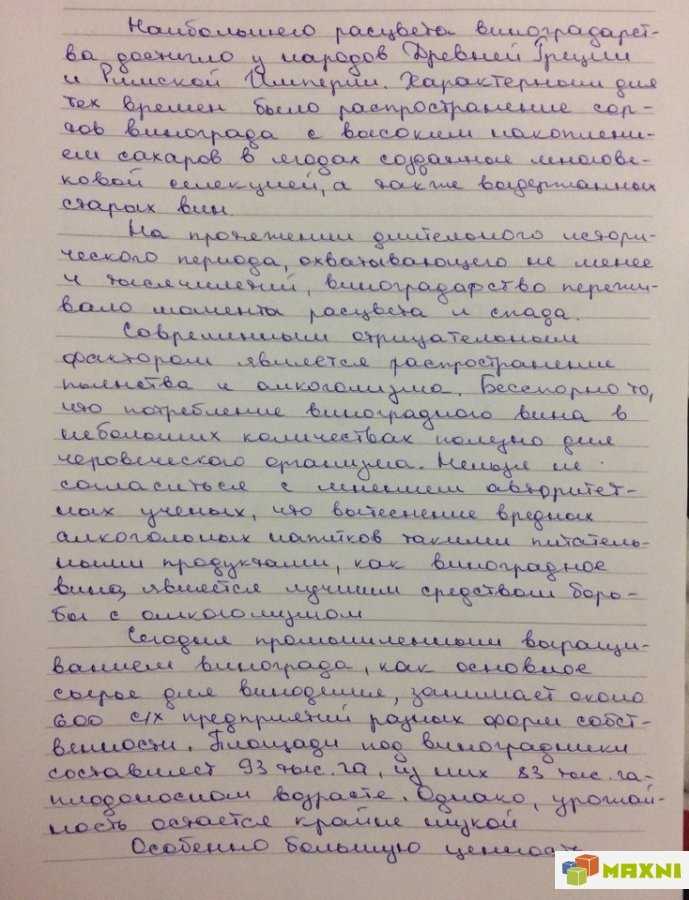 Наибольшего расцвета виноградарст-
ва достигло у народов Древней Греции
и Римской Империи. Характерным для
тех времен было распространение сор-
тов винограда с высоким накоплени-
ем сахаров в ягодах созданные многове-
ковой селекцией, а также выдержанных
старых вин.
На протяжении длительного истори-
ческого периода, охватывающего не менее
4 тысячилетий, виноградарство пережи-
вало момента расцвета и спада.
Современным отрицательным
фактором является распространение
пьянства и алкоголизма. Бесспорно то,
что потребление виноградного вина в
небольших количествах полезно для
человеческого организма. Нельзя не
согласиться с мнением авторитет-
ных ученых, что вытеснение вредных
алкогольных напитков такими питатель-
ными продуктами, как виноградное
вино, является лучшим средством борь-
бы с алкоголизмом
Сегодня промышленным выращи-
ванием винограда, как основное
сырье для виноделия, занимает около
600 с/х предприятий разных форм собст-
венности. Площади под виноградники
составляет 93 тыс. га, из них 83 тыс. га-
плодоносном возрасте. Однако, урожай-
ность остается крайне низкой
Особенно большую ценность
MAXNI